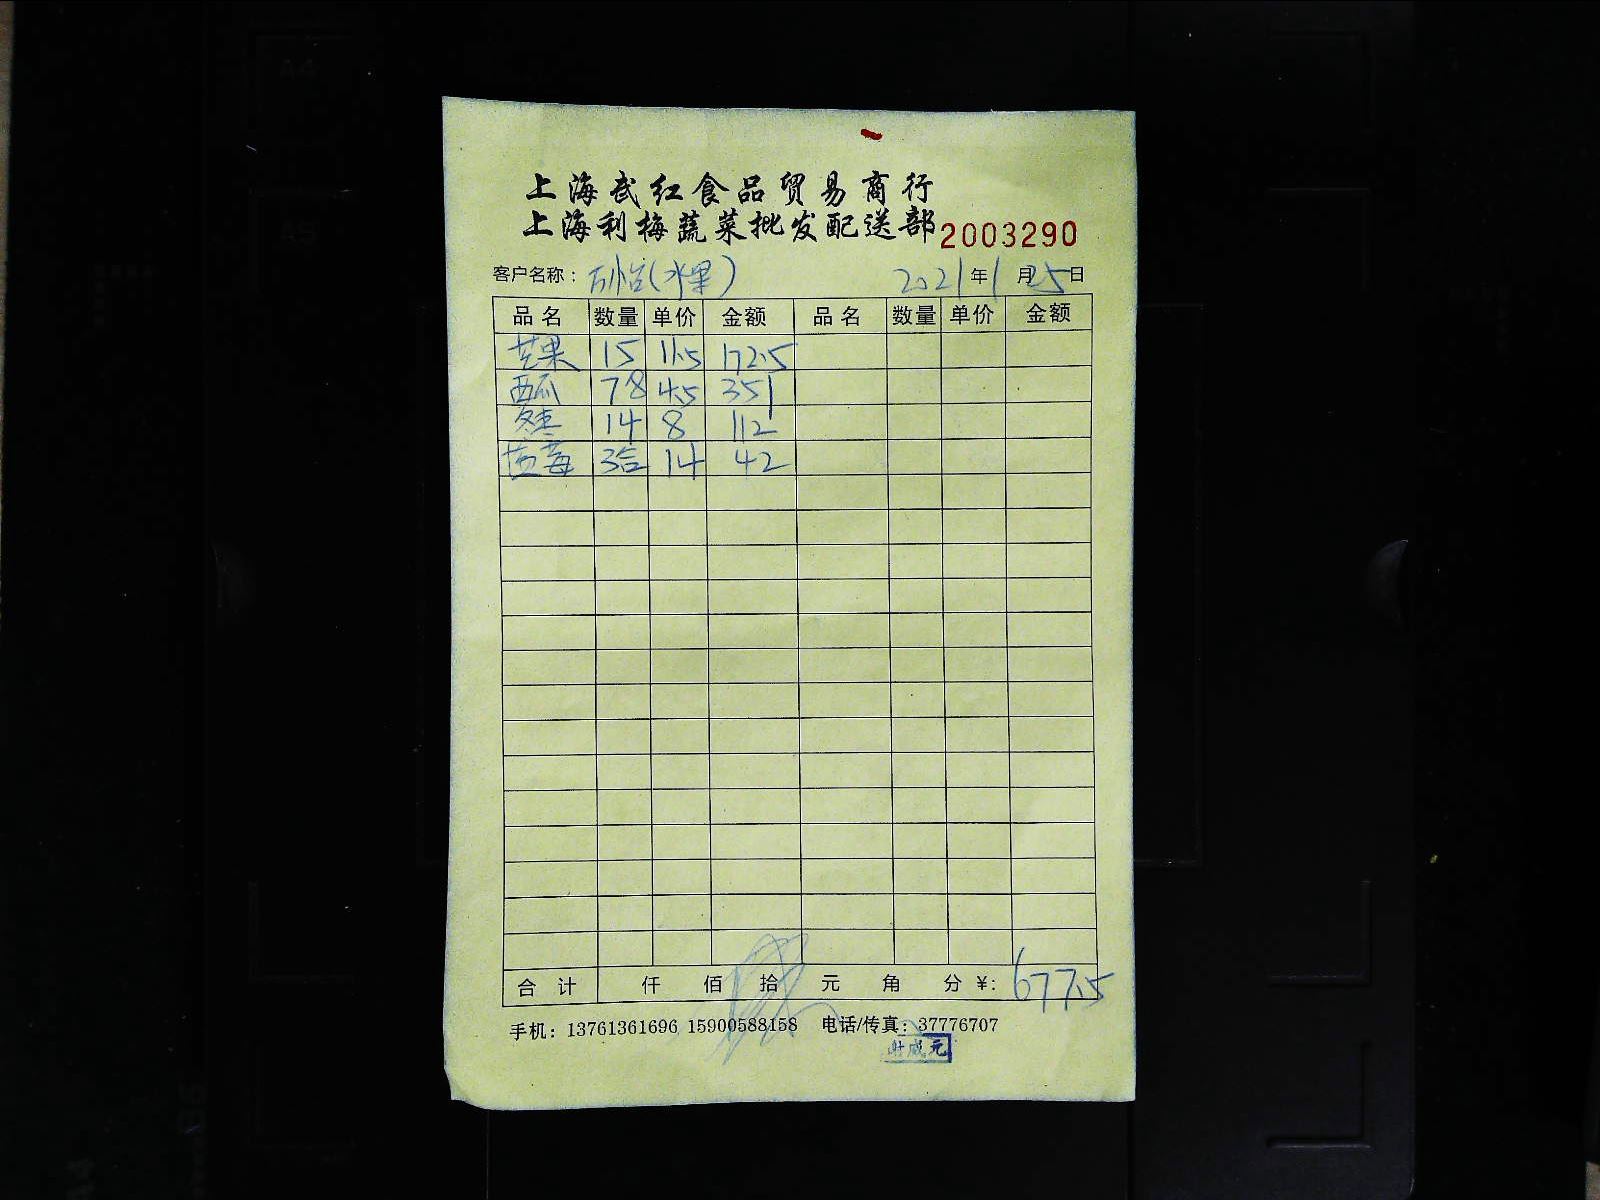 上海武红食品贸易商行
上海利梅蔬菜批发配送部 2003290
客户名称： (水果) 2021年1月25日
品名 数量 单价 金额 品名 数量 单价 金额
芒果 15 11.5 172.5
西瓜 78 4.5 351
冬枣 14 8 112
蓝莓 3合 14 42
合计 仟 佰 拾 元 角 分 ¥: 677.5
手机：13761361696 15900588158 电话/传真：37776707
谢成元